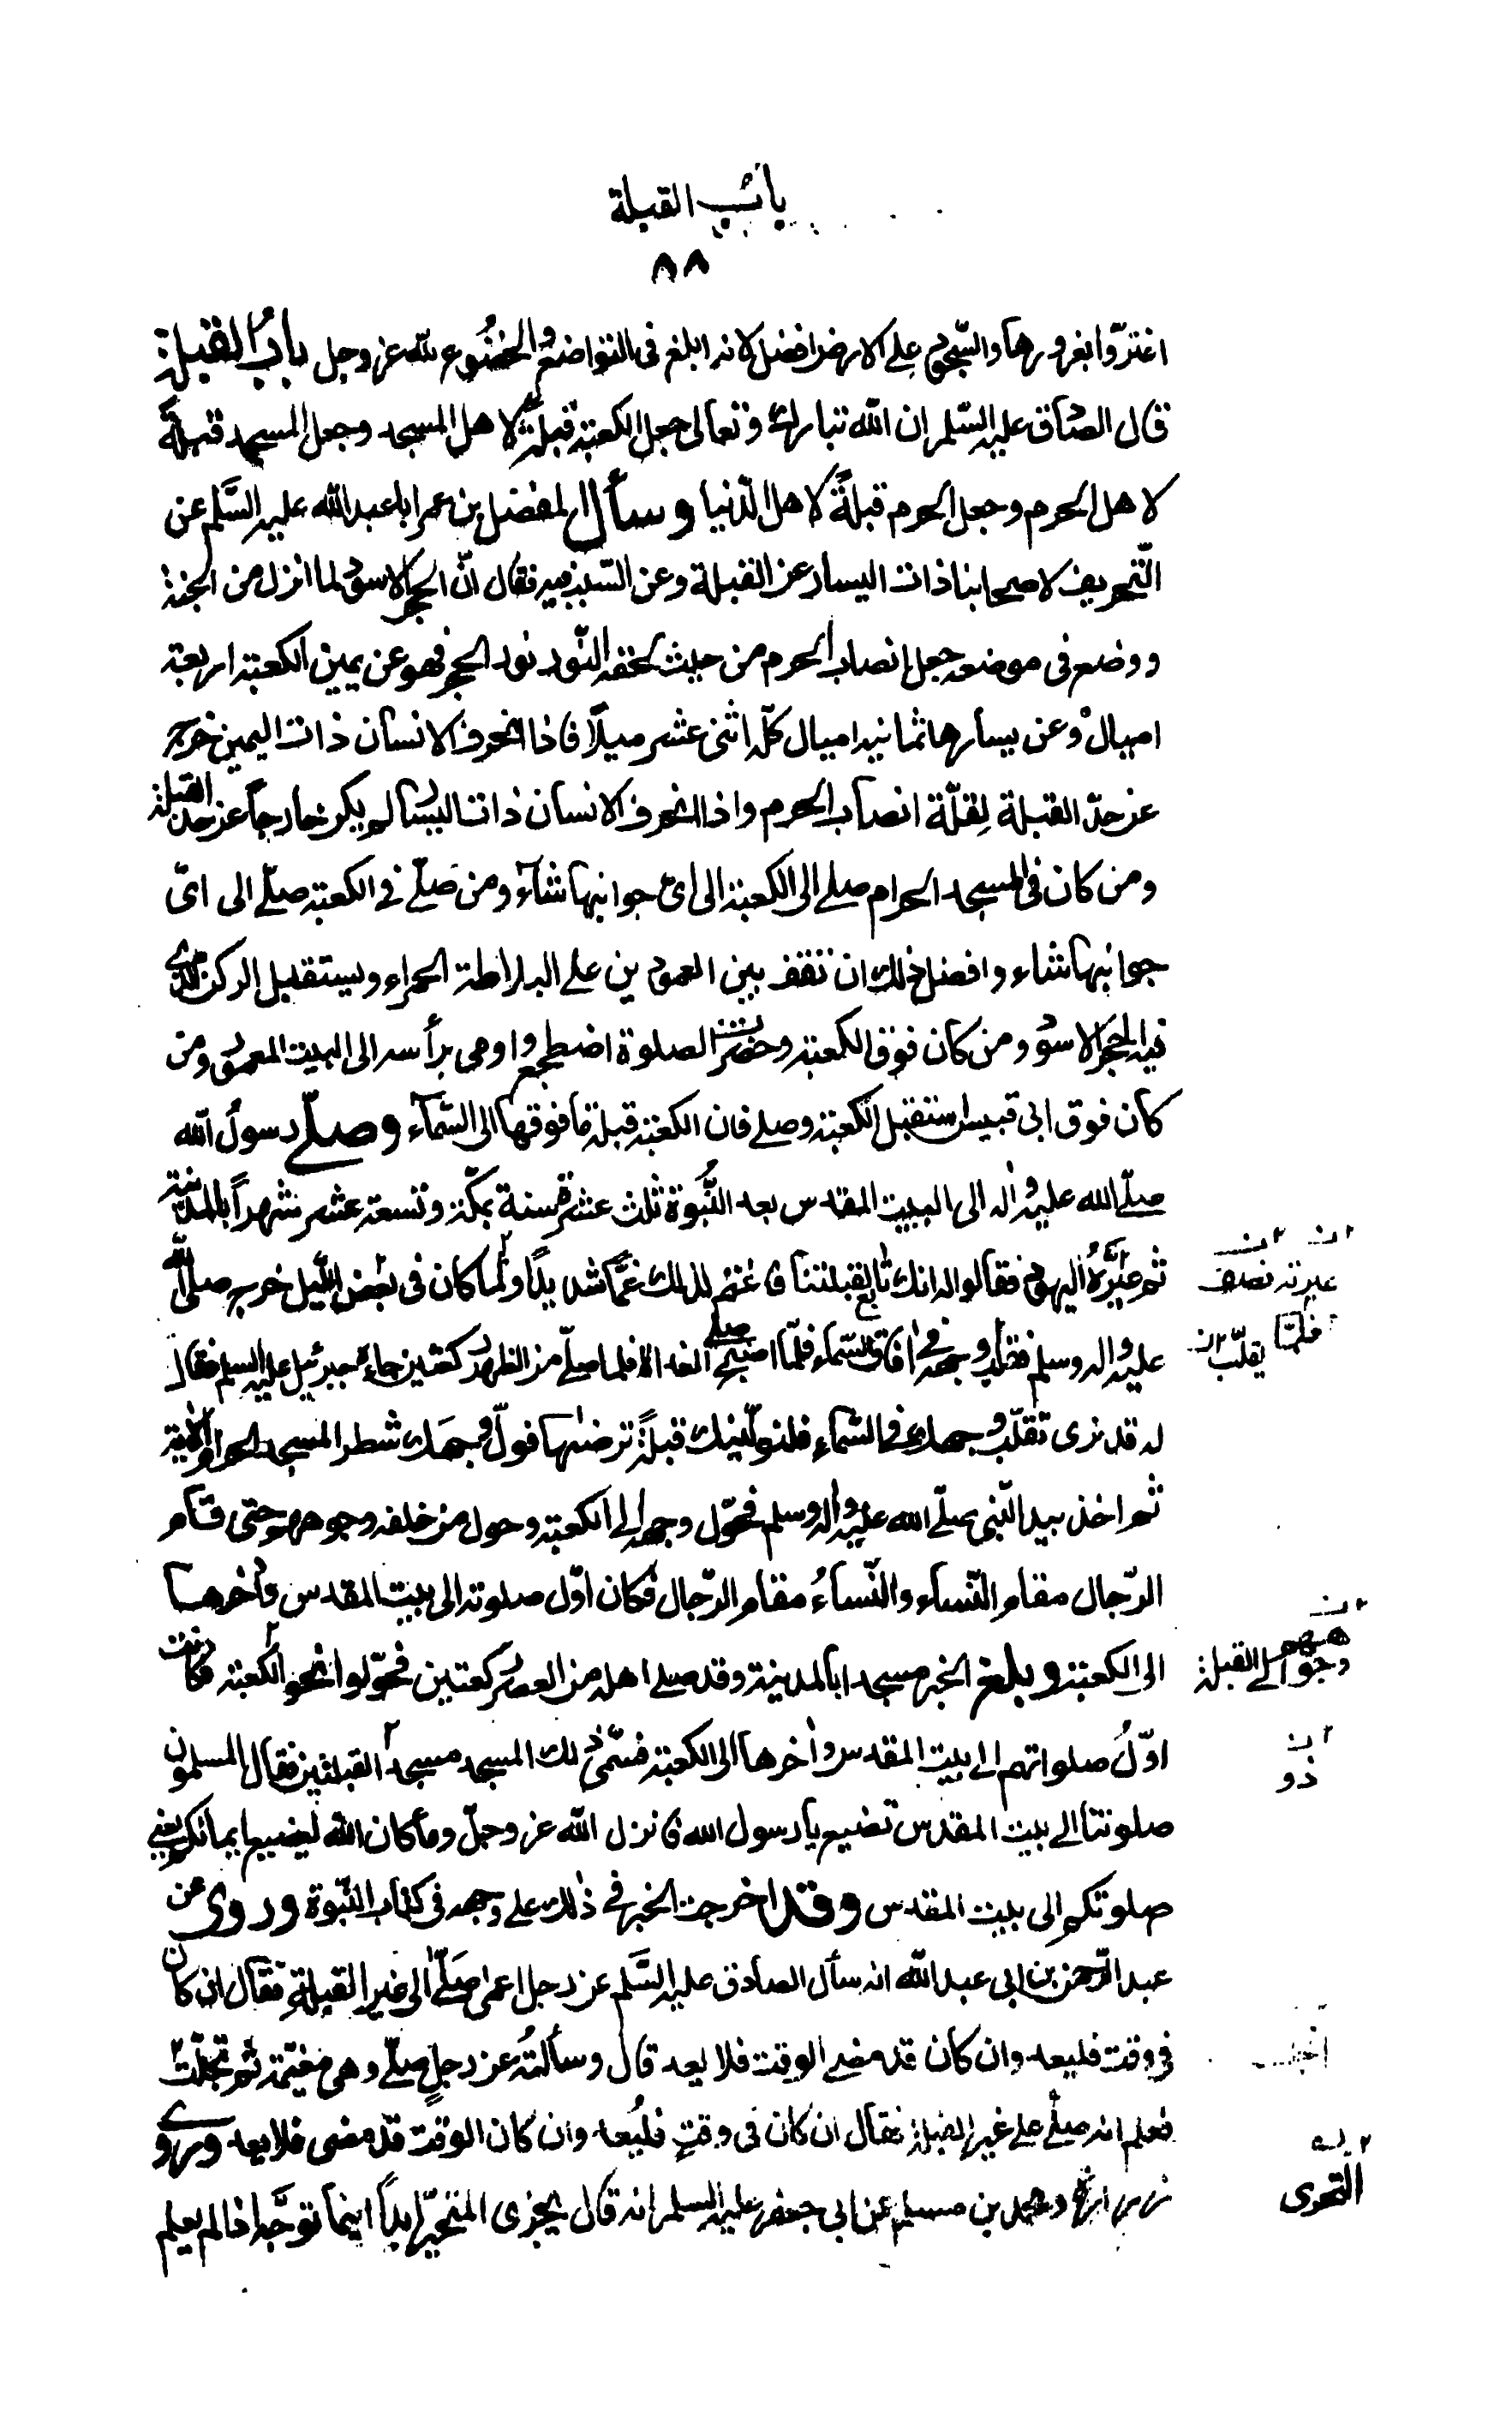 باب القبلة
٨٨
اغترّوا بغرورها والسّجود على الارض افضل لانه ابلغ فى التواضع والخضُوع لله عز وجل بابُ القبلة
قال الصّادق عليه السّلم ان الله تبارك وتعالى جعل الكعبة قبلةً لاهل المسجد وجعل المسجد قبلةً
لاهل الحرم وجعل الحرم قبلةً لاهل الدّنيا وسأل المفضل بن عمر ابا عبدالله عليه السَّلم عن
التّحريف لاصحابنا ذات اليسار عن القبلة وعن السّبب فيه فقال انّ الحجر الاسود لما انزل من الجنة
ووضع فى موضعه جعل انصاب الحرم من حيث لحقه النّور نور الحجر فهو عن يمين الكعبة اربعة
اميال وعن يسارها ثمانية اميال كلّه اثنى عشر ميلاً فاذا انحرف الانسان ذات اليمين خرج
عن حدّ القبلة لِقلّة انصاب الحرم واذا انحرف الانسان ذات اليسار لم يكن خارجاً عن حد القبلة
ومن كان فى المسجد الحرام صلى الى الكعبة الى اىّ جوانبها شآء ومن صلّى فى الكعبة صلّى الى اىّ
جوانبها شاء وافضل ذلك ان تقف بين العمودين على البلاطة الحمراء ويستقبل الركن الذى
فيه الحجر الاسود ومن كان فوق الكعبة وحضرت الصلوة اضطجع واومى برأسه الى البيت المعمور ومن
كان فوق ابى قبيس استقبل الكعبة وصلى فان الكعبة قبلة ما فوقها الى السّمآء وصلّى رسولُ الله
صلّى الله عليه واله الى البيت المقدس بعد النُّبوّة ثلث عشرة سنة بمكّة وتسعة عشر شهراً بالمدينة
ثم عيّرَتْهُ اليهود فقالوا له انك تابع لقبلتنا فاغتم لذلك غمّاً شديداً ولما كان فى بَعْض اللّيل خرج صلى الله
عليه واله وسلم يقلب وجهه فى افاق السّماء فلمّا اصبح صلى الغداة فلما صلّى من الظهر ركعتين جاءه جبرئيل عليه السلم فقال
له قد نرى تقلّب وجهك فى السّماء فلنولّينك قبلةً ترضٰها فولّ وجهك شطر المسجد الحرام الآية
ثم اخذ بيد النّبى صلّى الله عليه واله وسلم فحوّل وجهه الى الكعبة وحول من خلفه وجوههم حتى قام
الرّجال مقام النّساء والنّساءُ مقام الرّجال فكان اوّل صلوته الى بيت المقدس واٰخرها
الى الكعبة وبلغ الخبر مسجدا بالمدينة وقد صلى اهله من العصر ركعتين فحوّلوا نحو الكعبة فكانت
اوّلُ صلواتهم الى بيت المقدس واٰخرها الى الكعبة فسمّى ذلك المسجد مسجد القبلتين فقال المسلمون
صلوتنا الى بيت المقدس تضيع يا رسول الله فانزل الله عز وجلّ وما كان الله ليضيع ايمانكم يعنى
صلوتكم الى بيت المقدس وقد اخرجت الخبر فى ذلك على وجهه فى كتاب النّبوّة وروى عن
عبد الرّحمن بن ابى عبد الله انه سأل الصادق عليه السَّلم عن رجل اعمى صَلّى الى غير القبلةِ فقال ان كان
فى وقت فليعد وان كان قد مضى الوقت فلا يعد قال وسألتُه عن رجلٍ صلّى وهى مغيّمة ثم تجلّت
فعلم انه صلّى على غير القبلة فقال ان كان فى وقتٍ فليُعد وان كان الوقت قد مضى فلا يعد وروى
زرارة ومحمد بن مسلم عن ابى جعفر عليه السلم انه قال يجزى المتحيّر ابداً اينما توجَّه اذا لم يعلم
عيرته
فلمّا
يقلّب
وجوههم الى القبلة
ذو
التحرى